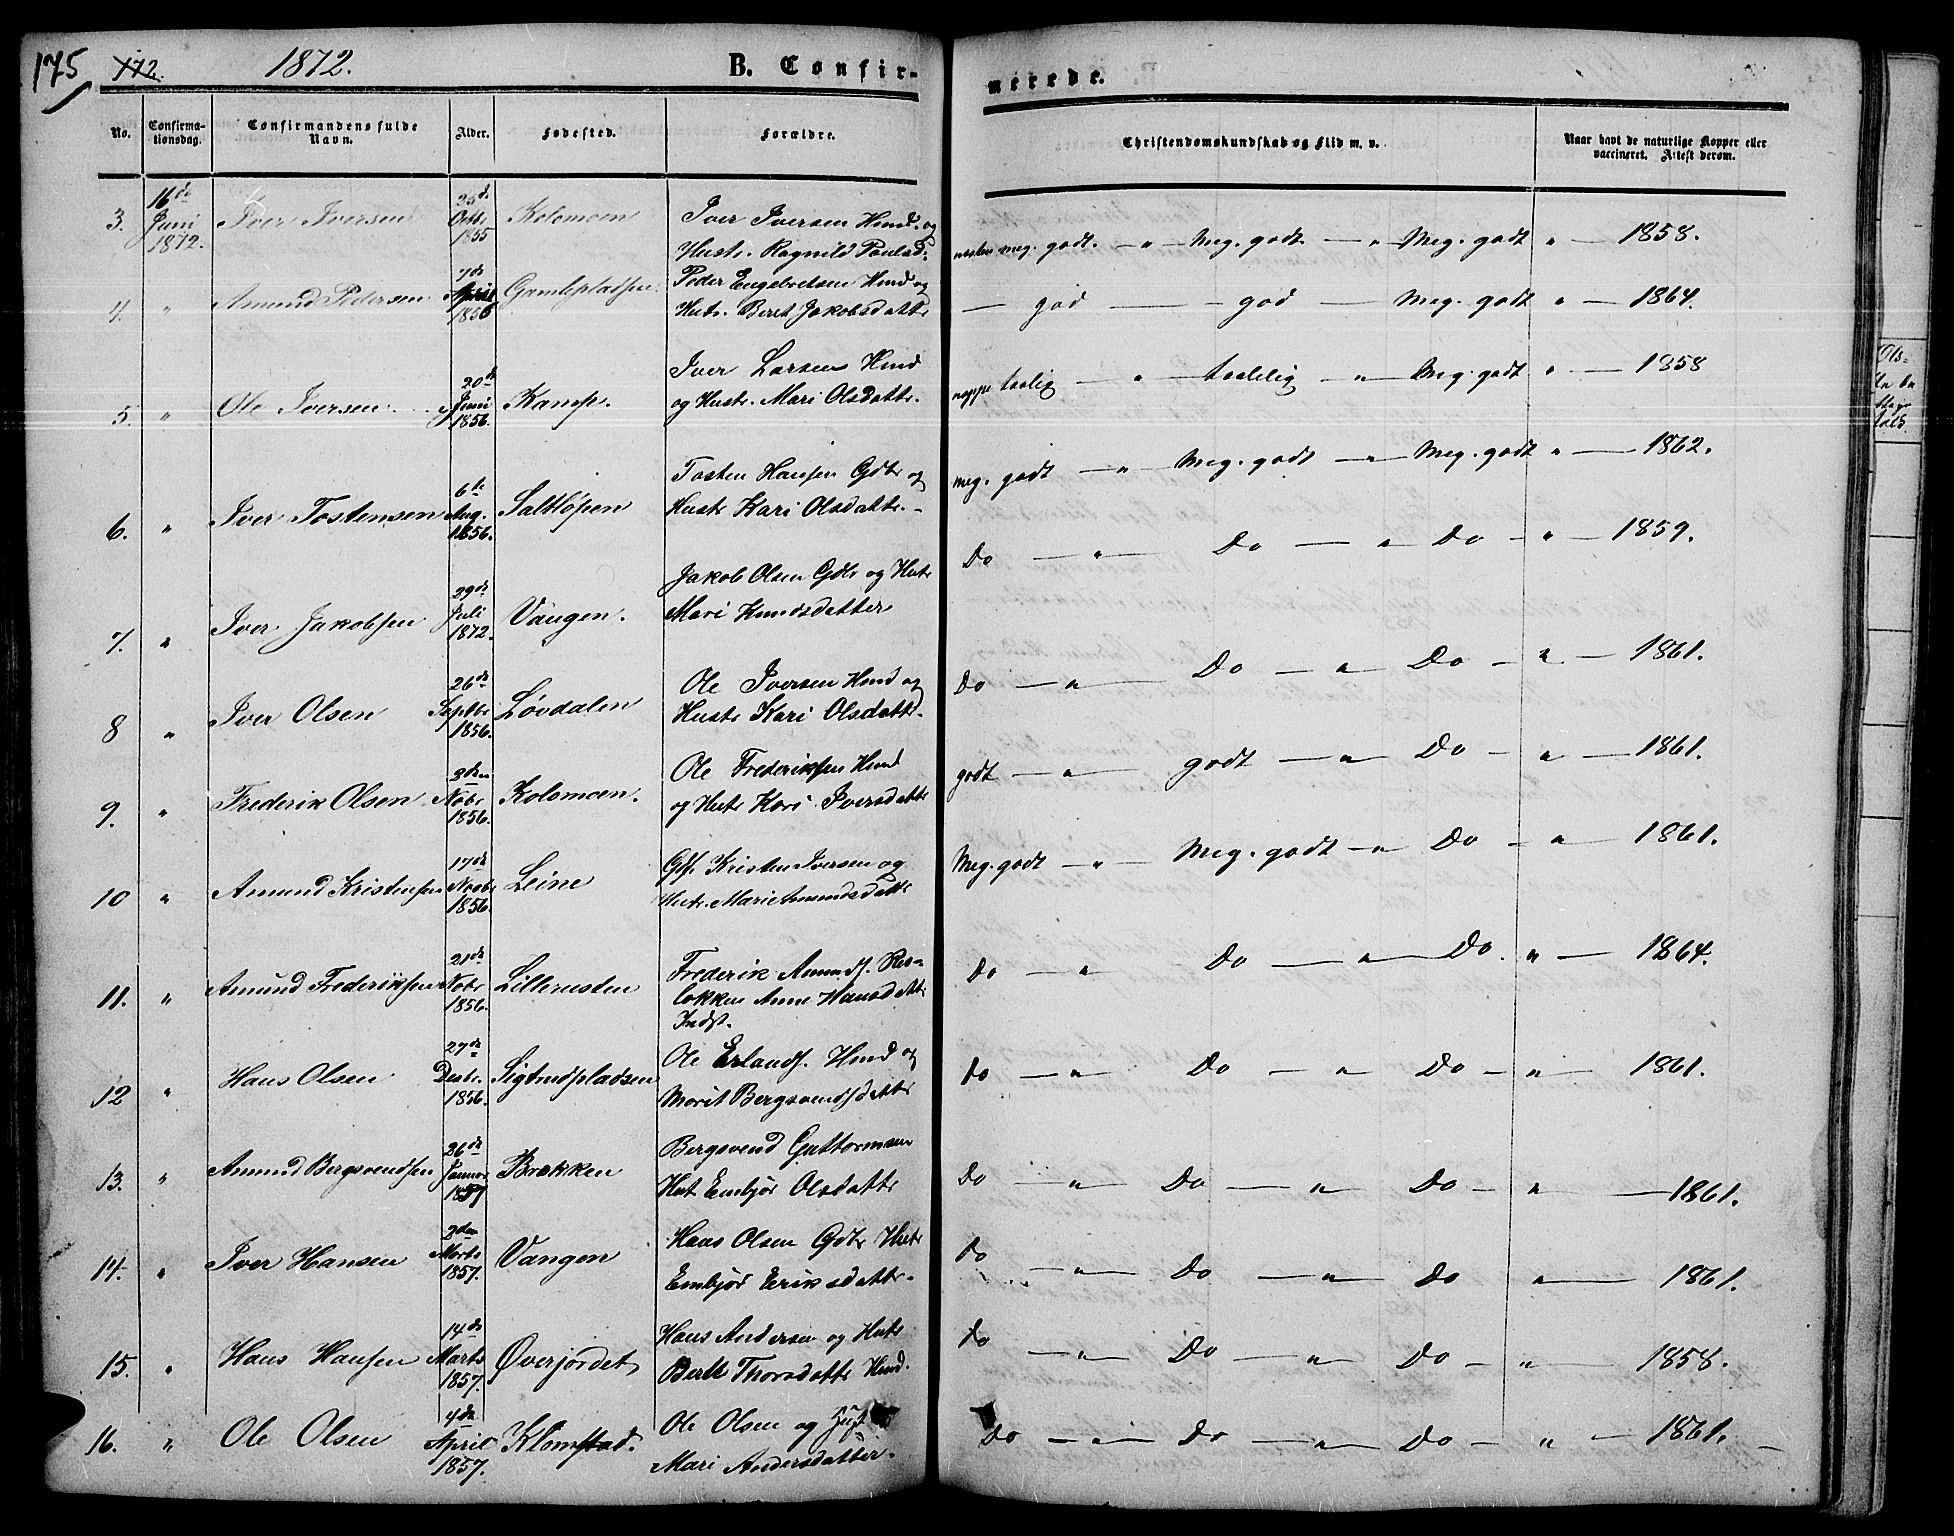 175 172. 1872. B. Confir-
merede.
No. Confirma-tionsdag. Confirmandens fulde Navn. Alder. Fødested. Forældre.
Christendomskundskab og Flid m. v. Naar havt de naturlige Kopper eller vaccineret. Attest derom.
3. 16de Juni 1872. Iver Iversen 25de Octbr 1855 Kolomoen Iver Iversen Hmd. og
Hustr. Ragnild Poulsd.
nesten meg. godt. — " — Meg. godt — " Meg. godt " — 1858.
4. " Amund Pedersen 7de April 1856 Peder Engebretsen Hmd og
Hust. Beret Jakobsdattr
— god — god — Meg. godt " — 1864.
5. " Ole Iversen 20de Juni 1856. Kamp. Iver Larsen Hmd
og Hustr. Mari Olsdattr.
neppe taalig — " — taalelig — " Meg. godt " — 1858
6. " Iver Tostensen 6te Aug. 1856. Saltløpen Tosten Hansen Gdbr og
Hustr Kari Olsdattr.
meg. godt — " — Meg. godt — " — Meg. godt " — 1862.
7. " Iver Jakobsen 29de Juli 1872. Vangen. Jakob Olsen Gdbr og Hustr
Mari Knudsdatter
Do — " — Do — " — Do — " — 1859.
8 " Iver Olsen 26de Septbr 1856. Løvdalen Ole Iversen Hmd og
Hustr Kari Olsdattr.
Do — " — Do — " — Do — " — 1861.
9. " Frederik Olsen 3den Nobr 1856. Kolomoen. Ole Frederiksen Hmd
og Hustr Kari Iversdattr
godt — " — godt — " — Do — " — 1861.
10 " Amund Kristensen 17de Novbr 1856. Leine Kristen Iversen og
Hustr. Mari Amundsdattr
Meg. godt — " — Meg. godt — " Do — " — 1861.
11. " Amund Frederiksen 21de Nobr 1856. Lillerusten Frederik Amunds.
Anne Hansdattr
Indst.
Do — " — Do — " — Do. " — 1864.
12 " Hans Olsen 27de Desbr. 1856. Sigtrudpladsen Ole Erlands. Hmd og
Marit Bergsvendsdattr
Do — " — Do — " — Do — " — 1861.
13. " Amund Bergsvendsen 26de Januar 1857 Brækken Bergsvend Guttormsen
Hust Embjør Olsdattr
Do — " — Do — " — Do — " — 1861.
14. " Iver Hansen 3den Marts 1857. Vangen Hans Olsen Gdbr Hustr
Embjør Eriksdattr.
Do — " — Do — " — Do " — 1861.
15. " Hans Hansen 14de Marts 1857. Øverjordet Hans Andersen og Hustr
Berth Thorsdattr Hmd.
Do — " — Do — " — Do — " — 1858.
16. " Ole Olsen 4de April 1857. Klomstad. Ole Olsen og
Mari Andersdatter.
Do — " — Do — " — Do — " — 1861. —